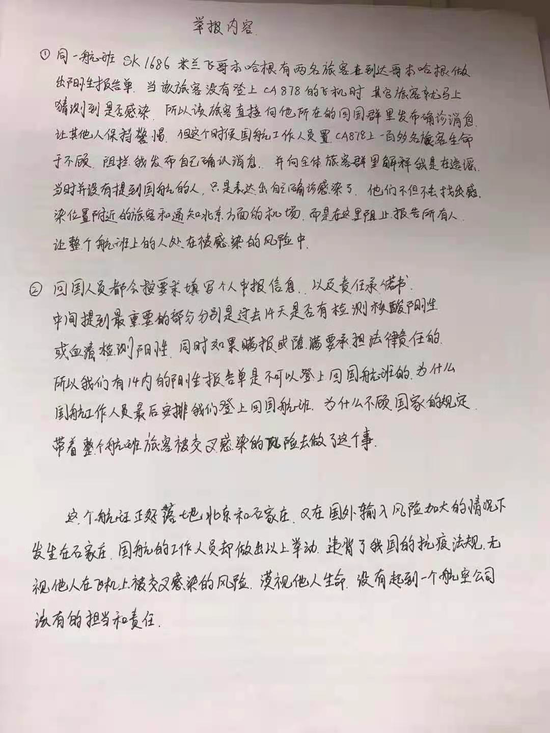 举报内容
① 同一航班 SK1686 米兰飞哥本哈根有两名旅客在到达哥本哈根做
出阳性报告单. 当该旅客没有登上 CA878 的飞机时 其它旅客就马上
猜测到是否感染. 所以该旅客直接向他所在的回国群里发布确诊消息
让其他人保持警惕. 但这个时候国航工作人员置 CA878上一百多名旅客生命
于不顾. 阻拦我发布自己确认消息. 并向全体旅客群里解释我是在造谣.
当时并没有提到国航的人. 只是表达出自己确诊感染了. 他们不但不去找出感
染位置附近的旅客和通知北京方面的机场. 而是在这里阻止报告所有人.
让整个航班上的人处在被感染的风险中.
② 回国人员都会按要求填写个人申报信息. 以及责任承诺书.
中间提到最重要的部分分别是过去14天是否有检测核酸阳性
或血清检测阳性. 同时如果瞒报或隐瞒要承担法律责任的.
所以我们有14内的阳性报告单是不可以登上回国航班的. 为什么
国航工作人员最后安排我们登上回国航班. 为什么不顾国家的规定.
带着整个航班旅客被交叉感染的风险去做了这个事.
这个航班正好落地北京和石家庄. 又在国外输入风险加大的情况下
发生在石家庄. 国航的工作人员却做出以上举动. 违背了我国的抗疫法规. 无
视他人在飞机上被交叉感染的风险. 漠视他人生命. 没有起到一个航空公司
该有的担当和责任.